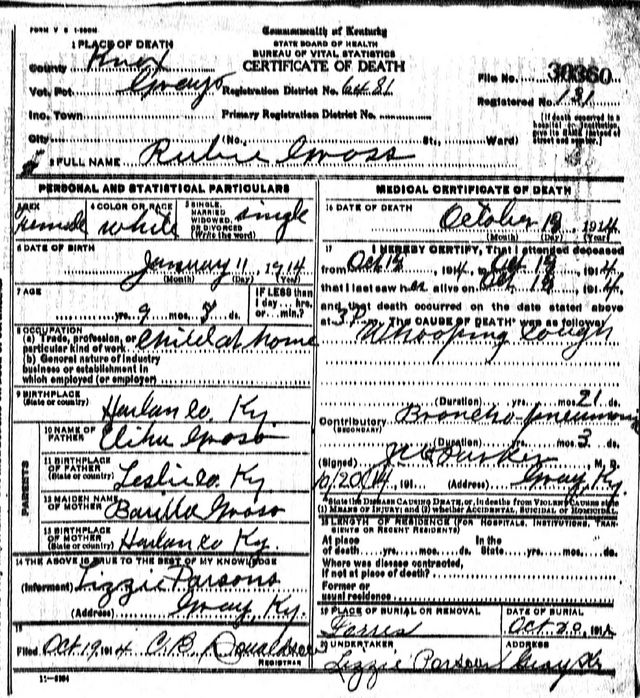 FORM V S 1-500M
Commonwealth of Kentucky
STATE BOARD OF HEALTH
BUREAU OF VITAL STATISTICS
CERTIFICATE OF DEATH
1 PLACE OF DEATH
County Knox
Vot. Pct. Grays Registration District No. 6481
File No. 30360
Inc. Town Primary Registration District No.
Registered No. 131
City (No. St., Ward)
[If death occurred in a hospital or institution, give its NAME instead of street and number.]
2 FULL NAME Rubie Gross
PERSONAL AND STATISTICAL PARTICULARS
3 SEX female
4 COLOR OR RACE white
5 SINGLE, MARRIED, WIDOWED, OR DIVORCED (Write the word) single
6 DATE OF BIRTH
January 11, 1914
(Month) (Day) (Year)
7 AGE
yrs. 9 mos. 7 ds.
IF LESS than 1 day, hrs. or min.?
8 OCCUPATION
(a) Trade, profession, or particular kind of work Child at home
(b) General nature of industry business or establishment in which employed (or employer)
9 BIRTHPLACE
(State or country) Harlan Co. Ky.
PARENTS
10 NAME OF FATHER Elihu Gross
11 BIRTHPLACE OF FATHER
(State or country) Leslie Co. Ky
12 MAIDEN NAME OF MOTHER Barilla Gross
13 BIRTHPLACE OF MOTHER
(State or country) Harlan Co Ky.
14 THE ABOVE IS TRUE TO THE BEST OF MY KNOWLEDGE
(Informant) Lizzie Parsons
(Address) Gray, Ky.
15
Filed Oct 19, 1914 C. B. Donaldson
REGISTRAR
11-3184
MEDICAL CERTIFICATE OF DEATH
16 DATE OF DEATH
October 18, 1914
(Month) (Day) (Year)
17 I HEREBY CERTIFY, That I attended deceased
from Oct 18, 1914, to Oct 18, 1914
that I last saw her alive on Oct 18, 1914
and that death occurred on the date stated above
at 3 P. The CAUSE OF DEATH* was as follows:
Whooping Cough
(Duration) yrs. mos. 21 ds.
Contributory Broncho-pneumonia
(SECONDARY)
(Duration) yrs. mos. 3 ds.
(Signed) Parker, M. D.
10/20/14, 191 (Address) Gray, Ky.
*State the DISEASE CAUSING DEATH, or, in deaths from VIOLENT CAUSES state (1) MEANS OF INJURY; and (2) whether ACCIDENTAL, SUICIDAL or HOMICIDAL.
18 LENGTH OF RESIDENCE (FOR HOSPITALS, INSTITUTIONS, TRANSIENTS OR RECENT RESIDENTS)
At place of death yrs. mos. ds. In the State yrs. mos. ds.
Where was disease contracted,
if not at place of death?
Former or usual residence
19 PLACE OF BURIAL OR REMOVAL
DATE OF BURIAL
Oct 20, 191
20 UNDERTAKER
ADDRESS
Lizzie Parsons Gray Ky